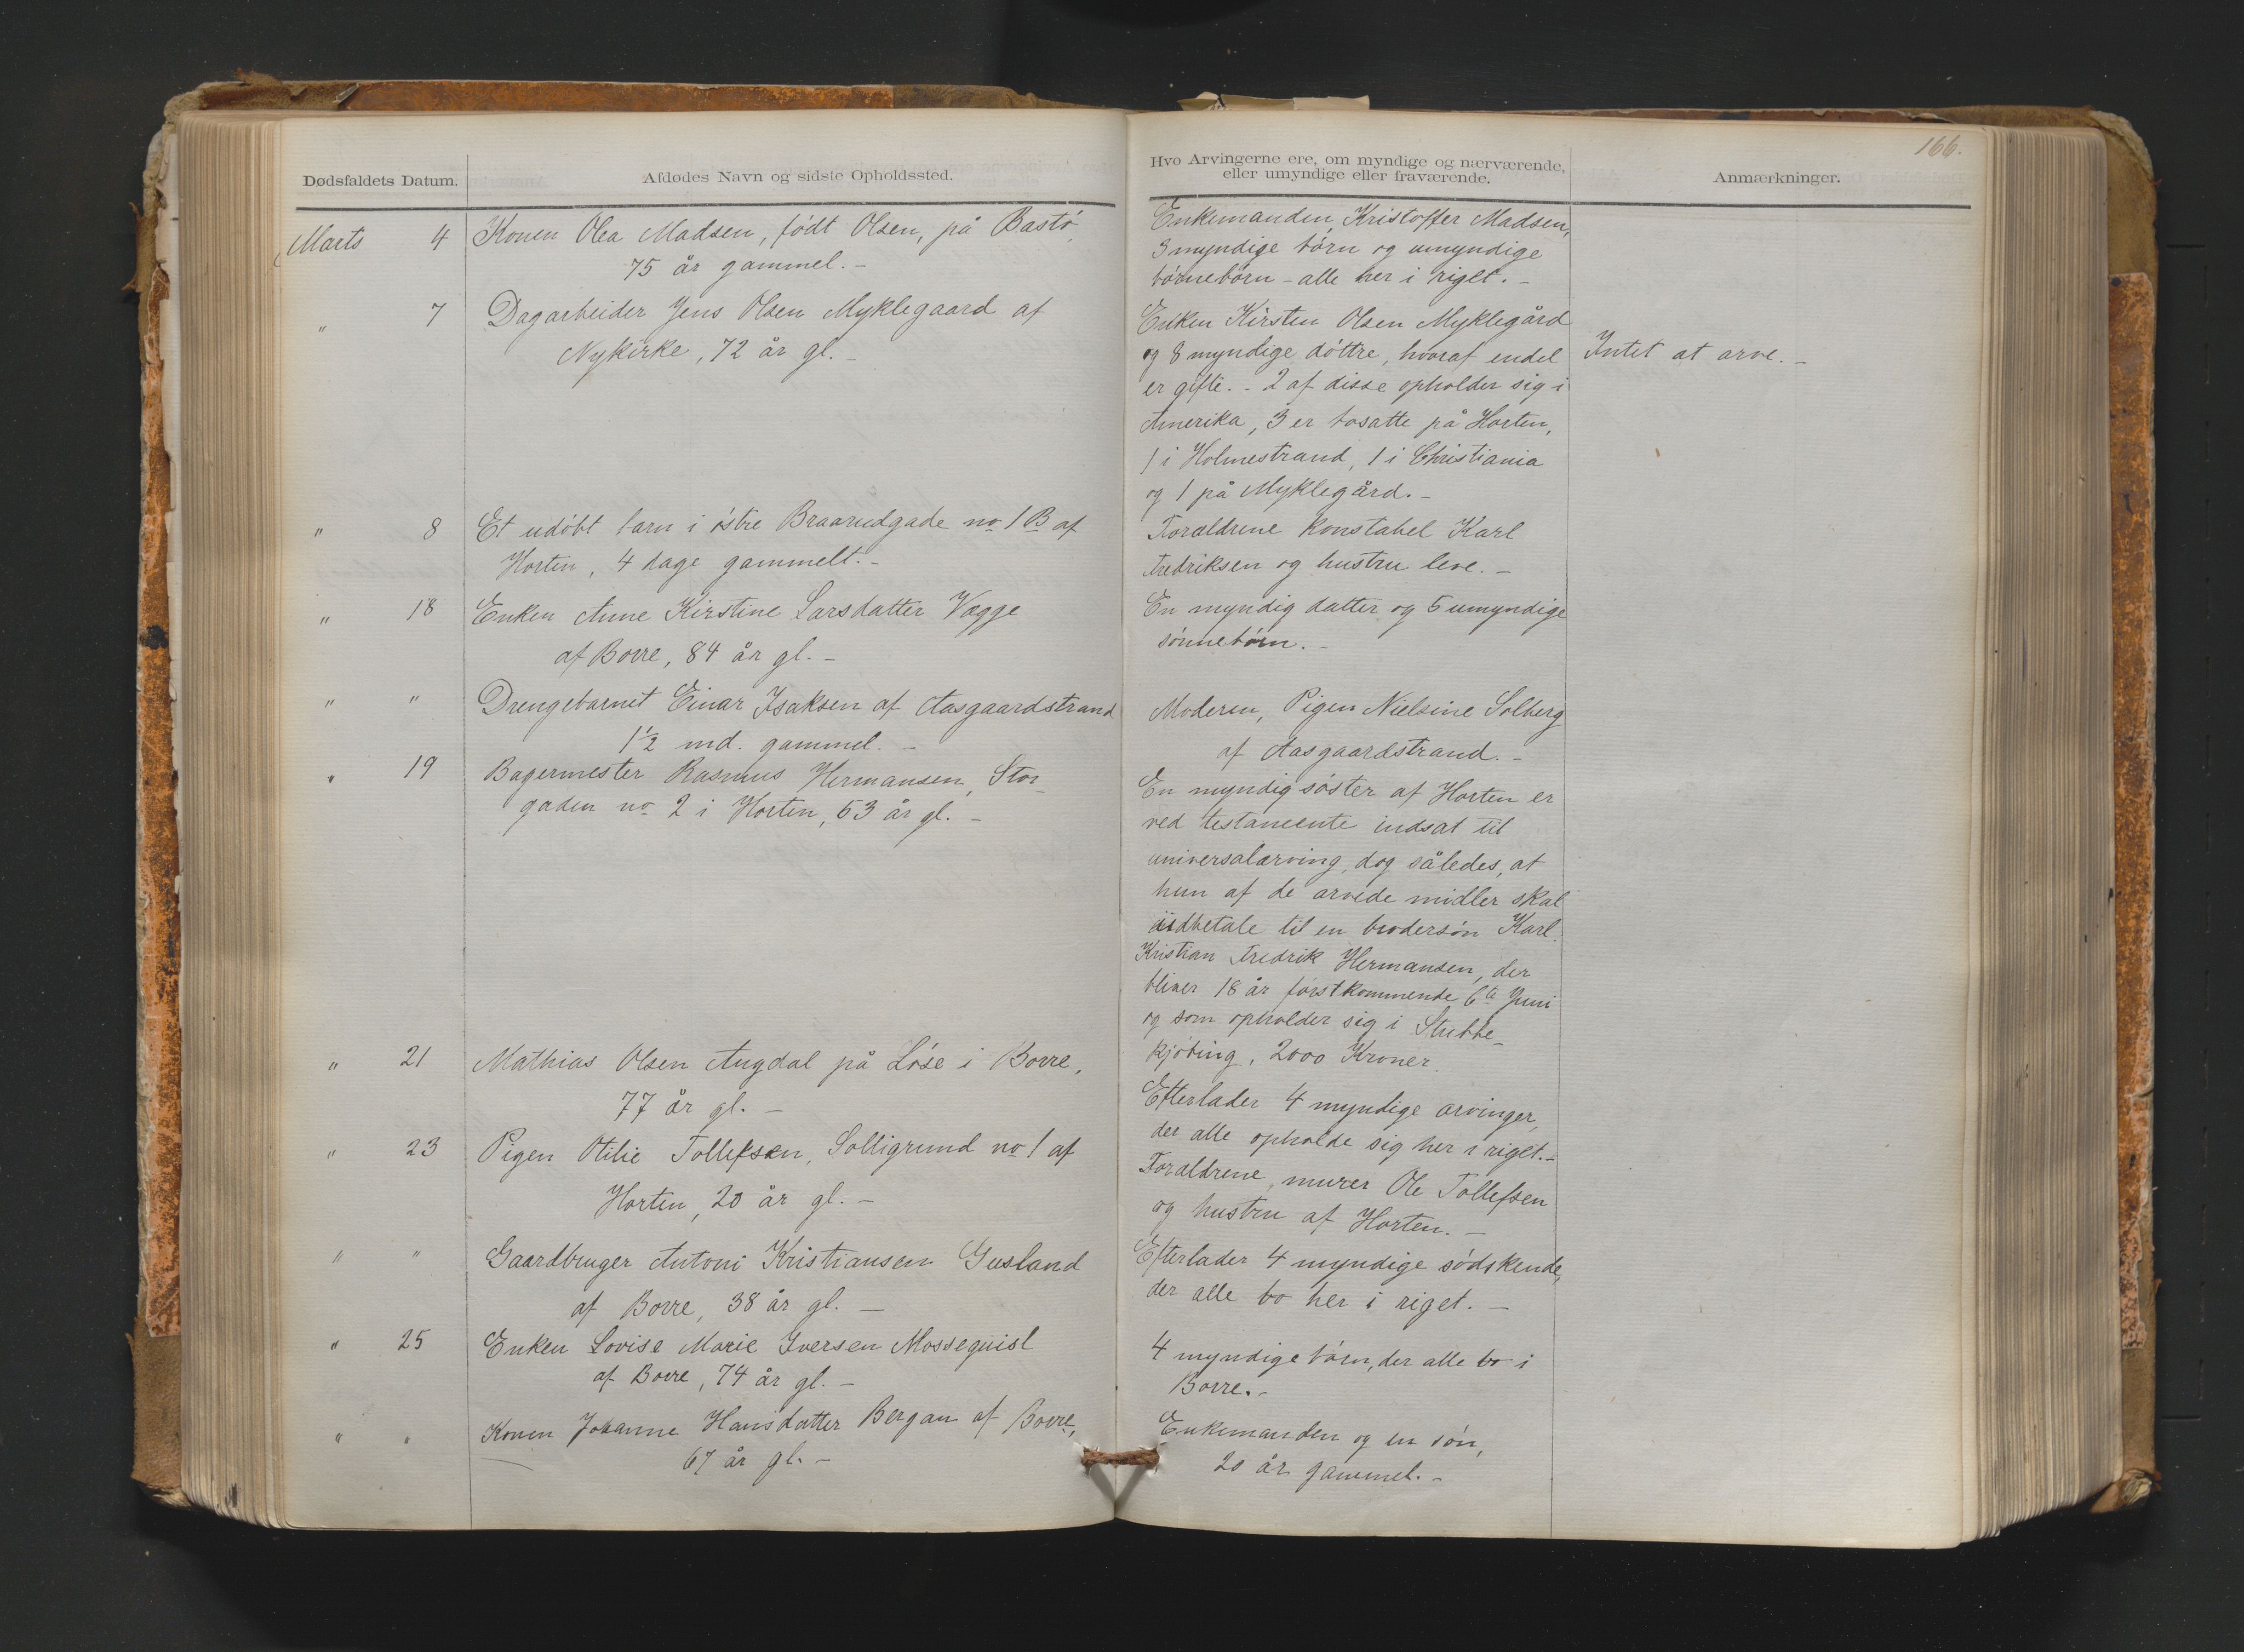 166.
Dødsfaldets Datum.
Afdødes Navn og sidste Opholdssted.
Hvo Arvingerne ere, om myndige og nærværende,
eller umyndige eller fraværende.
Anmærkninger.
Marts 4 Konen Olea Madsen, født Olsen, på Bastø,
75 år gammel. -
Enkemanden, Kristoffer Madsen,
3 myndige børn og umyndige
børnebørn - alle her i riget. -
" 7 Dagarbeider Jens Olsen Myklegaard af
Nykirke, 72 år gl. -
Enken Kirsten Olsen Myklegård
og 8 myndige døttre, hvoraf endel
er gifte. - 2 af disse opholder sig i
Amerika, 3 er bosatte på Horten,
1 i Holmestrand, 1 i Christiania
og 1 på Myklegård. -
Intet at arve. -
" 8 Et udøbt barn i østre Braarudgade no 1 B af
Horten, 4 dage gammelt. -
Forældrene konstabel Karl
Fredriksen og hustru leve. -
" 18 Enken Anne Kirstine Larsdatter Vægge
af Borre, 84 år gl. -
En myndig datter og 5 umyndige
sønnebørn. -
" " Drengebarnet Einar Isaksen af Aasgaardstrand
1½ md. gammel. -
Moderen, Pigen Nielsine Solberg
af Aasgaardstrand. -
" 19 Bagermester Rasmus Hermansen, Stor-
gaden no 2 i Horten, 53 år gl. -
En myndig søster af Horten er
ved testamente indsat til
universalarving, dog således, at
hun af de arvede midler skal
udbetale til en brodersøn Karl
Kristian Fredrik Hermansen, der
bliver 18 år førstkommende 6te Juni
og som opholder sig i Stubbe-
kjøbing, 2000 Kroner.
" 21 Mathias Olsen Augdal på Løse i Borre,
77 år gl. -
Efterlader 4 myndige arvinger,
der alle opholde sig her i riget. -
" 23 Pigen Otilie Tollefsen, Solligrund no 1 af
Horten, 20 år gl. -
Forældrene, murer Ole Tollefsen
og hustru af Horten. -
" " Gaardbruger Antoni Kristiansen Gusland
af Borre, 38 år gl. -
Efterlader 4 myndige sødskende,
der alle bo her i riget. -
" 25 Enken Lovise Marie Iversen Mossequist
af Borre, 74 år gl. -
4 myndige børn, der alle bo i
Borre. -
" " Konen Johanne Hansdatter Bergan af Borre,
67 år gl. -
Enkemanden og en søn,
20 år gammel. -